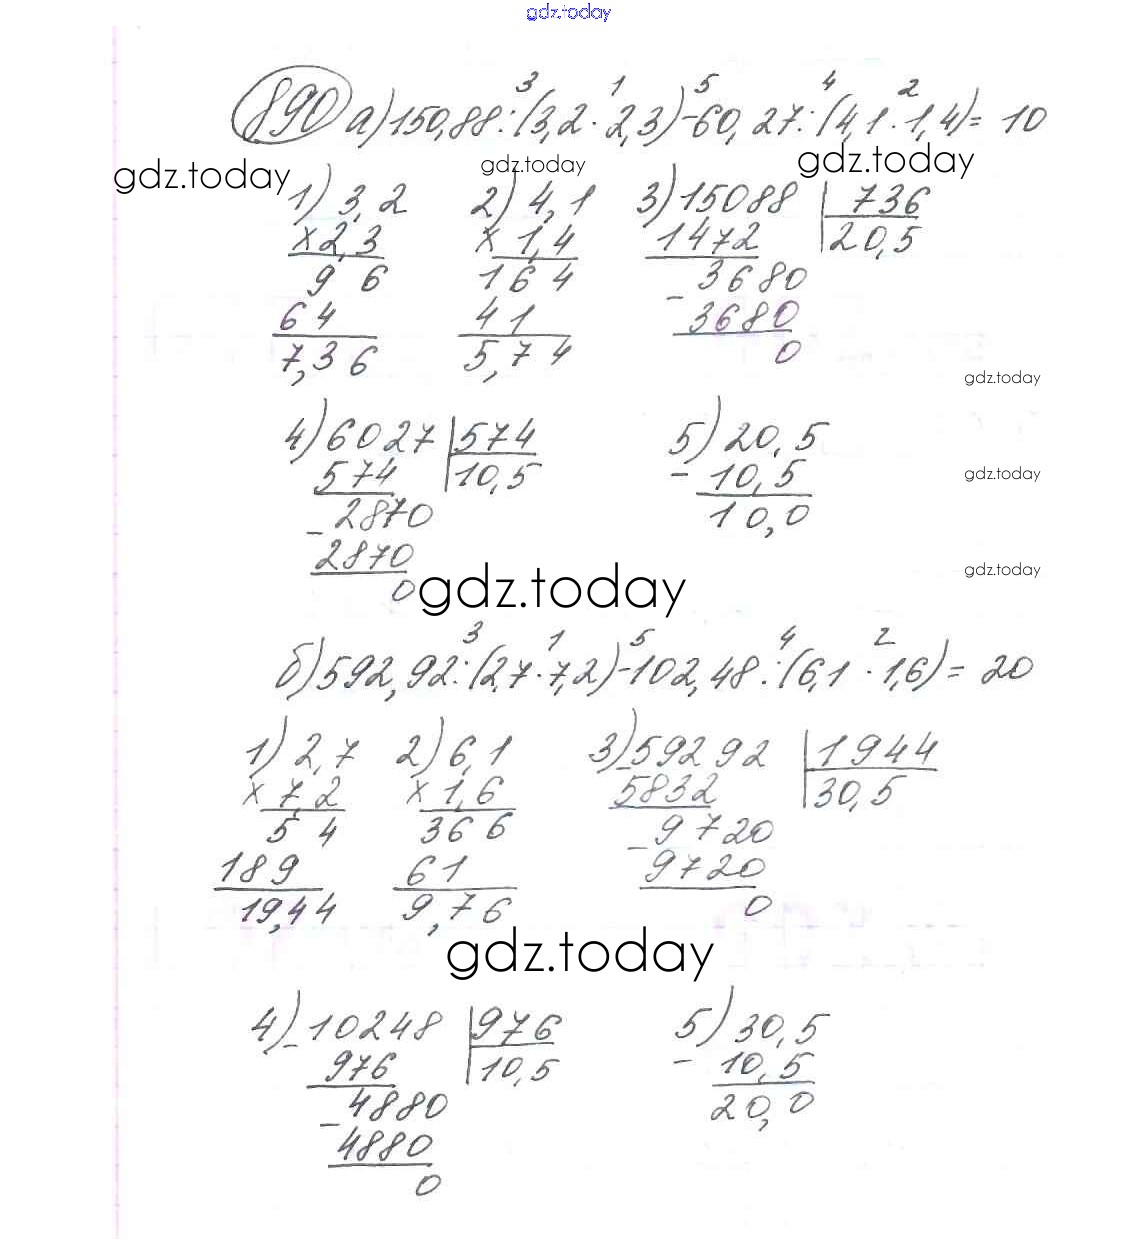 gdz.today
890 а) 150,88 : (3,2 · 2,3) - 60,27 : (4,1 · 1,4) = 10
3 1 5 4 2
gdz.today gdz.today gdz.today
1) 3,2 2) 4,1 3) 15088 | 736
× 2,3 × 1,4 1472 20,5
9 6 1 6 4 - 3680
6 4 4 1 3680
7,36 5,74 0
gdz.today
4) 6027 | 574 5) 20,5
574 10,5 - 10,5
- 2870 10,0
2870
0
gdz.today
gdz.today
gdz.today
б) 592,92 : (2,7 · 7,2) - 102,48 : (6,1 · 1,6) = 20
3 1 5 4 2
1) 2,7 2) 6,1 3) - 59292 | 1944
× 7,2 × 1,6 5832 30,5
5 4 36 6 - 9720
189 61 9720
19,44 9,76 0
gdz.today
4) - 10248 | 976 5) 30,5
976 10,5 - 10,5
- 4880 20,0
4880
0